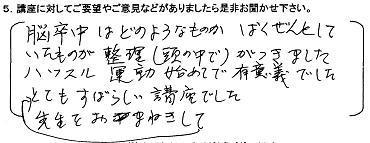 5. 講座に対してご要望やご意見などがありましたら是非お聞かせ下さい。
脳卒中はどのようなものかばくぜんとして
いたものが整理(頭の中で)がつきました
ハッスル運動始めてで有意義でした
とてもすばらしい講座でした
先生をおまねきして